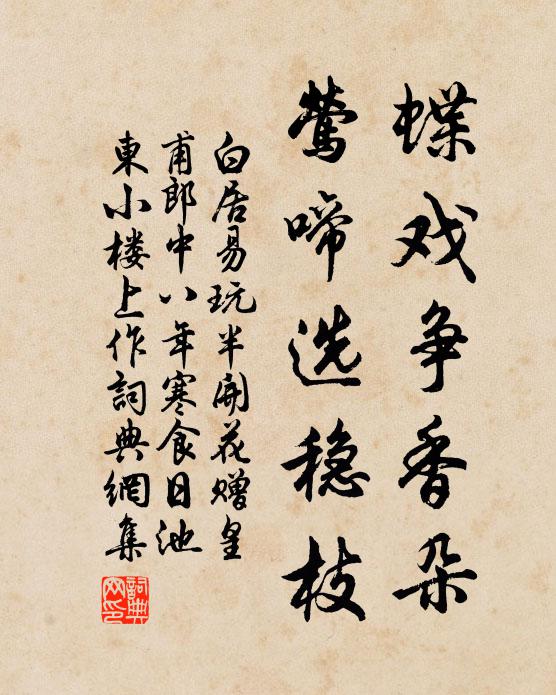 蝶戏争香朵
莺啼选稳枝
白居易玩半開花赠皇
甫郎中八年寒食日池
東小楼上作詞典網集
詞典
网印